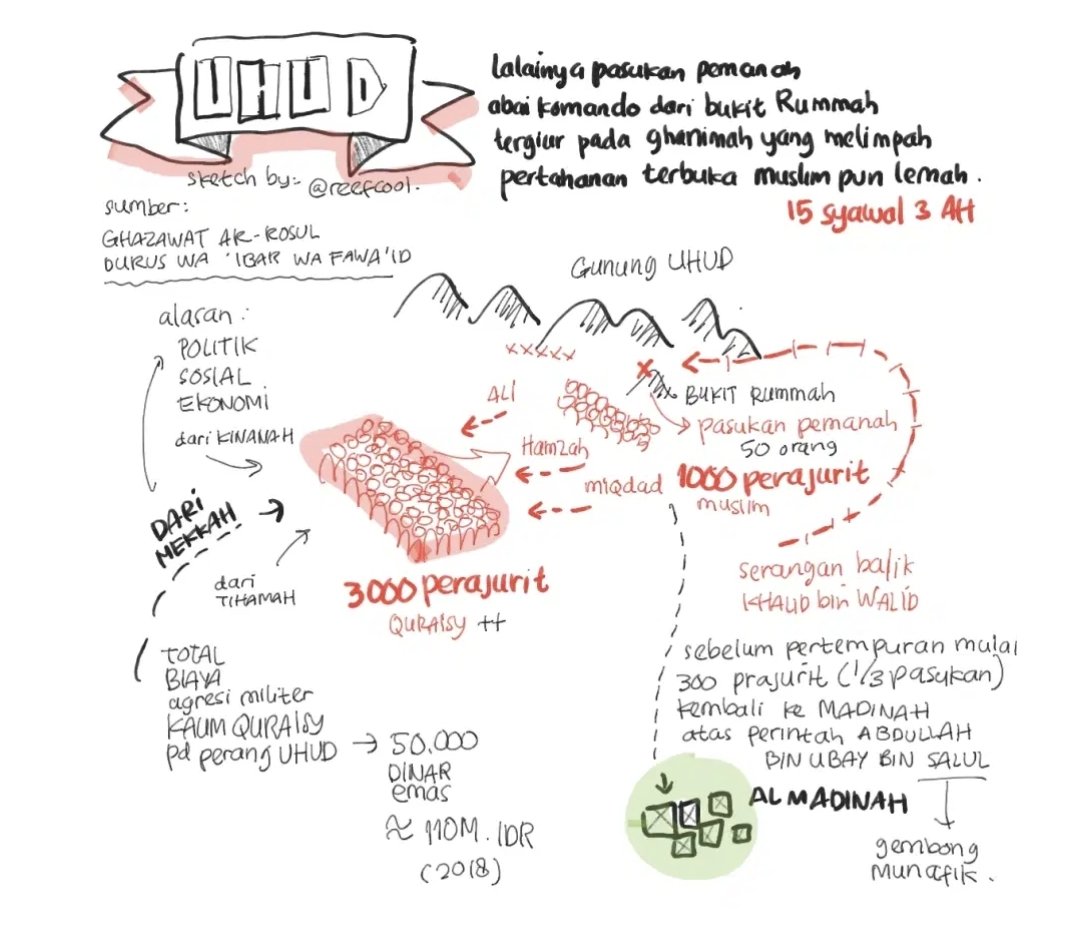 UHUD
sketch by:- @reefcool.
sumber:
GHAZAWAT AR-ROSUL
DURUS WA 'IBAR WA FAWA'ID
lalainya pasukan pemanah
abai komando dari bukit Rummah
tergiur pada ghanimah yang melimpah
pertahanan terbuka muslim pun lemah.
15 syawal 3 AH
Gunung UHUD
alasan :
POLITIK
SOSIAL
EKONOMI
dari KINANAH
DARI
MEKKAH
dari
TIHAMAH
xxxxx
ALI
Hamzah
miqdad
x
BUKIT Rummah
pasukan pemanah
50 orang
1000 perajurit
muslim
3000 perajurit
QURAISY ++
serangan balik
KHALID bin WALID
TOTAL
BIAYA
agresi militer
KAUM QURAISY
pd perang UHUD → 50.000
DINAR
emas
≈ 110M. IDR
(2018)
sebelum pertempuran mulai
300 prajurit (1/3 pasukan)
kembali ke MADINAH
atas perintah ABDULLAH
BIN UBAY BIN SALUL
AL MADINAH
gembong
munafik.